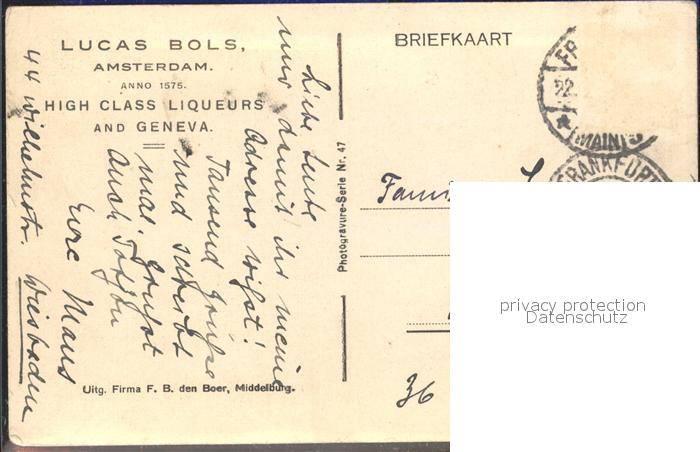 LUCAS BOLS,
AMSTERDAM.
ANNO 1575.
HIGH CLASS LIQUEURS
AND GENEVA.
BRIEFKAART
Liebe Leute
nur damit ihr meine
Adresse wißt!
Tausend Grüße
und schreibt
mal. Grüßt
auch
Eure Maus
44 Wilhelmstr. Wiesbaden
Photogravure-Serie Nr. 47
Uitg. Firma F. B. den Boer, Middelburg.
FR
22.
(MAIN)
FRANKFURT
36
privacy protection
Datenschutz